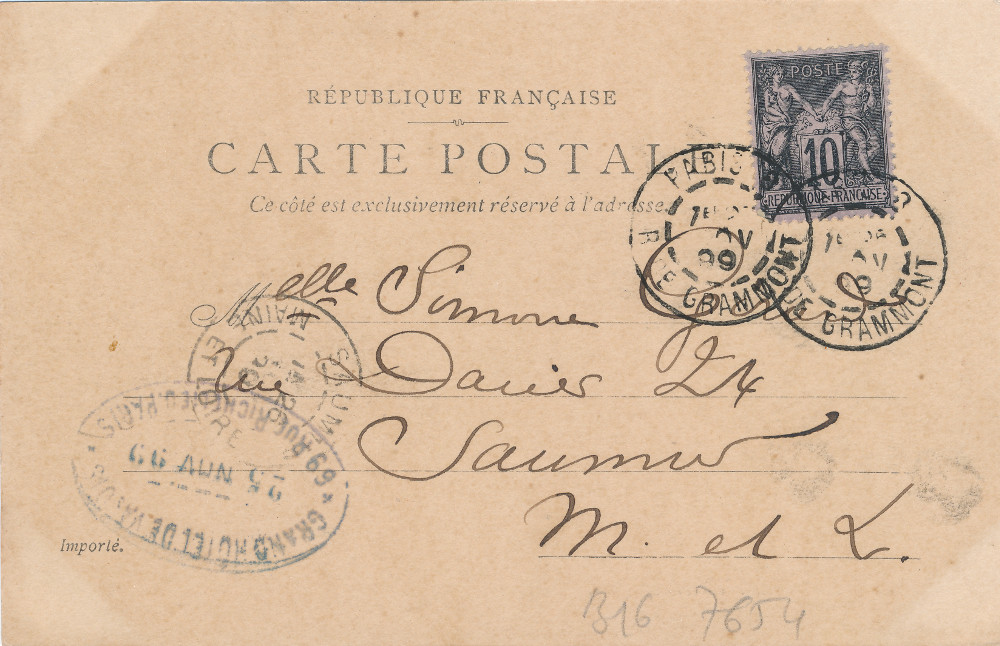 RÉPUBLIQUE FRANÇAISE
CARTE POSTALE
Ce côté est exclusivement réservé à l'adresse
POSTE
10
REPUBLIQUE FRANÇAISE
PARIS
R. DE GRAMMONT
99
DE GRAMMONT
Melle Simone
rue Dacier 24
Saumur
M. et L.
SAUMUR
MAINE ET LOIRE
GRAND HÔTEL DE VALOIS
69 RUE RICHELIEU PARIS
25 NOV 99
Importé.
B16 7654